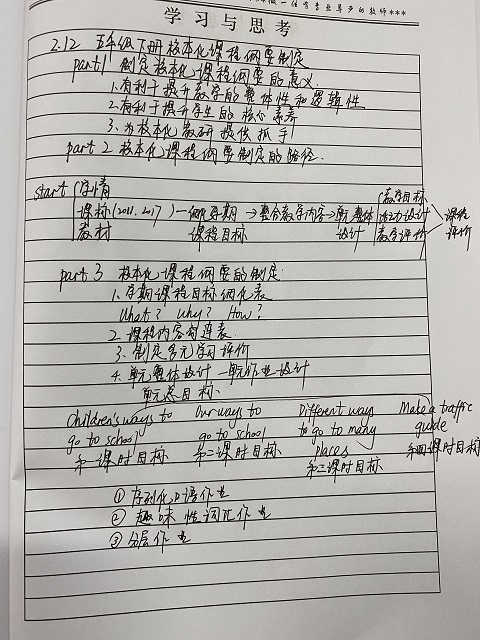 做一位有专业尊严的教师***
学习与思考
2.12 五年级下册校本化课程纲要制定
part1 制定校本化课程纲要的意义
1.有利于提升教学的整体性和逻辑性
2.有利于提升学生的核心素养
3.为校本化教研提供抓手
part 2 校本化课程纲要制定的路径.
start 学情 教学目标
课标(2011.2017) 细化学期 → 整合教学内容 → 单元整体 活力设计 课程
教材 课程目标 设计 教学评价 评价
part 3 校本化课程纲要的制定
1.学期课程目标细化表
What? Why? How?
2.课程内容勾连表
3.制定多元学习评价
4.单元整体设计—单元作业设计
单元总目标
Children's ways to Our ways to Different ways Make a traffic
go to school go to school to go to many guide
第一课时目标 第二课时目标 places 第四课时目标
第三课时目标
① 序列化口语作业
② 趣味性词汇作业
③ 分层作业